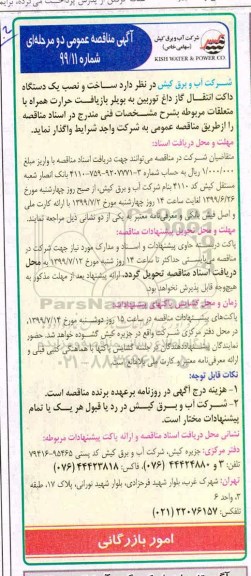 شرکت آب و برق کیش
(سهامی خاص)
KISH WATER & POWER CO.
آگهی مناقصه عمومی دو مرحله‌ای
شماره ۹۹/۱۱
شرکت آب و برق کیش در نظر دارد ساخت و نصب یک دستگاه
داکت انتقال گاز داغ توربین به بویلر بازیافت حرارت همراه با
متعلقات مربوطه بشرح مشخصات فنی مندرج در اسناد مناقصه
را ازطریق مناقصه عمومی به شرکت واجد شرایط واگذار نماید.
مهلت و محل دریافت اسناد:
متقاضیان شرکت در مناقصه می‌توانند جهت دریافت اسناد مناقصه با واریز مبلغ
۱/۰۰۰/۰۰۰ ریال به حساب شماره بانک انصار شعبه
مستقل کیش کد ۴۱۱۰ بنام شرکت آب و برق کیش، از صبح روز چهارشنبه مورخ
۱۳۹۹/۶/۲۶ لغایت ساعت ۱۴ روز چهارشنبه مورخ ۱۳۹۹/۷/۲ با ارائه کارت ملی
و اصل فیش بانکی و معرفی‌نامه معتبر به یکی از دو نشانی ذیل مراجعه نمایند.
مهلت و محل تحویل پیشنهادات مناقصه:
پاکت دربسته حاوی پیشنهادات و اسناد و مدارک مورد نیاز جهت شرکت در
مناقصه می‌بایستی حداکثر تا ساعت ۱۴ روز شنبه مورخ ۱۳۹۹/۷/۱۲ به محل
دریافت اسناد مناقصه تحویل گردد، ارائه پیشنهاد بعد از مهلت مذکور به
هیچ‌وجه قابل پذیرش نخواهد بود.
زمان و محل گشایش پاکتهای پیشنهادات:
پاکت‌های پیشنهادات مناقصه در ساعت ۱۵ روز دوشنبه مورخ ۱۳۹۹/۷/۱۴
در محل دفتر مرکزی شرکت واقع در جزیره کیش گشوده خواهد شد. حضور
نمایندگان پیشنهاددهندگان در جلسه گشایش پاکتها با هماهنگی کتبی قبلی و
ارائه معرفی‌نامه معتبر و کارت ملی بلامانع است.
نکات قابل توجه:
۱- هزینه درج آگهی در روزنامه برعهده برنده مناقصه است.
۲- شرکت آب و برق کیش در رد یا قبول هر یک یا تمام
پیشنهادات مختار است.
نشانی محل دریافت اسناد مناقصه و ارائه پاکت پیشنهادات مربوطه:
دفتر مرکزی: جزیره کیش، شرکت آب و برق کیش کد پستی ۹۵۴۶۵-۷۹۴۱۶
تلفن: ۳ و ۴۴۴۲۴۸۸۰ (۰۷۶)، فاکس: ۴۴۴۲۳۸۱۸ (۰۷۶)
تهران: شهرک غرب، بلوار شهید فرحزادی، بلوار شهید نورانی، پلاک ۱۷، طبقه
۳، واحد ۶
تلفکس: ۲۲۰۷۶۱۵۷ (۰۲۱)
امور بازرگانی